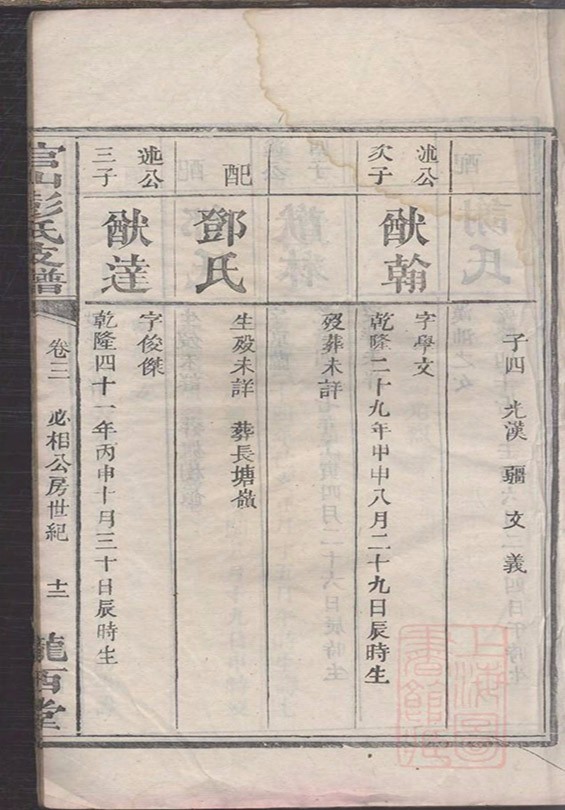 子四 光漢 疆 文 義
述公
次子
猷翰
字學文
乾隆二十九年甲申八月二十九日辰時生
歿葬未詳
配
鄧氏
生歿未詳 葬長塘嶺
述公
三子
猷達
字俊傑
乾隆四十一年丙申十月三十日辰時生
官山彭氏支譜
卷三 必相公房世紀 十二
隴西堂
上海圖
書館藏